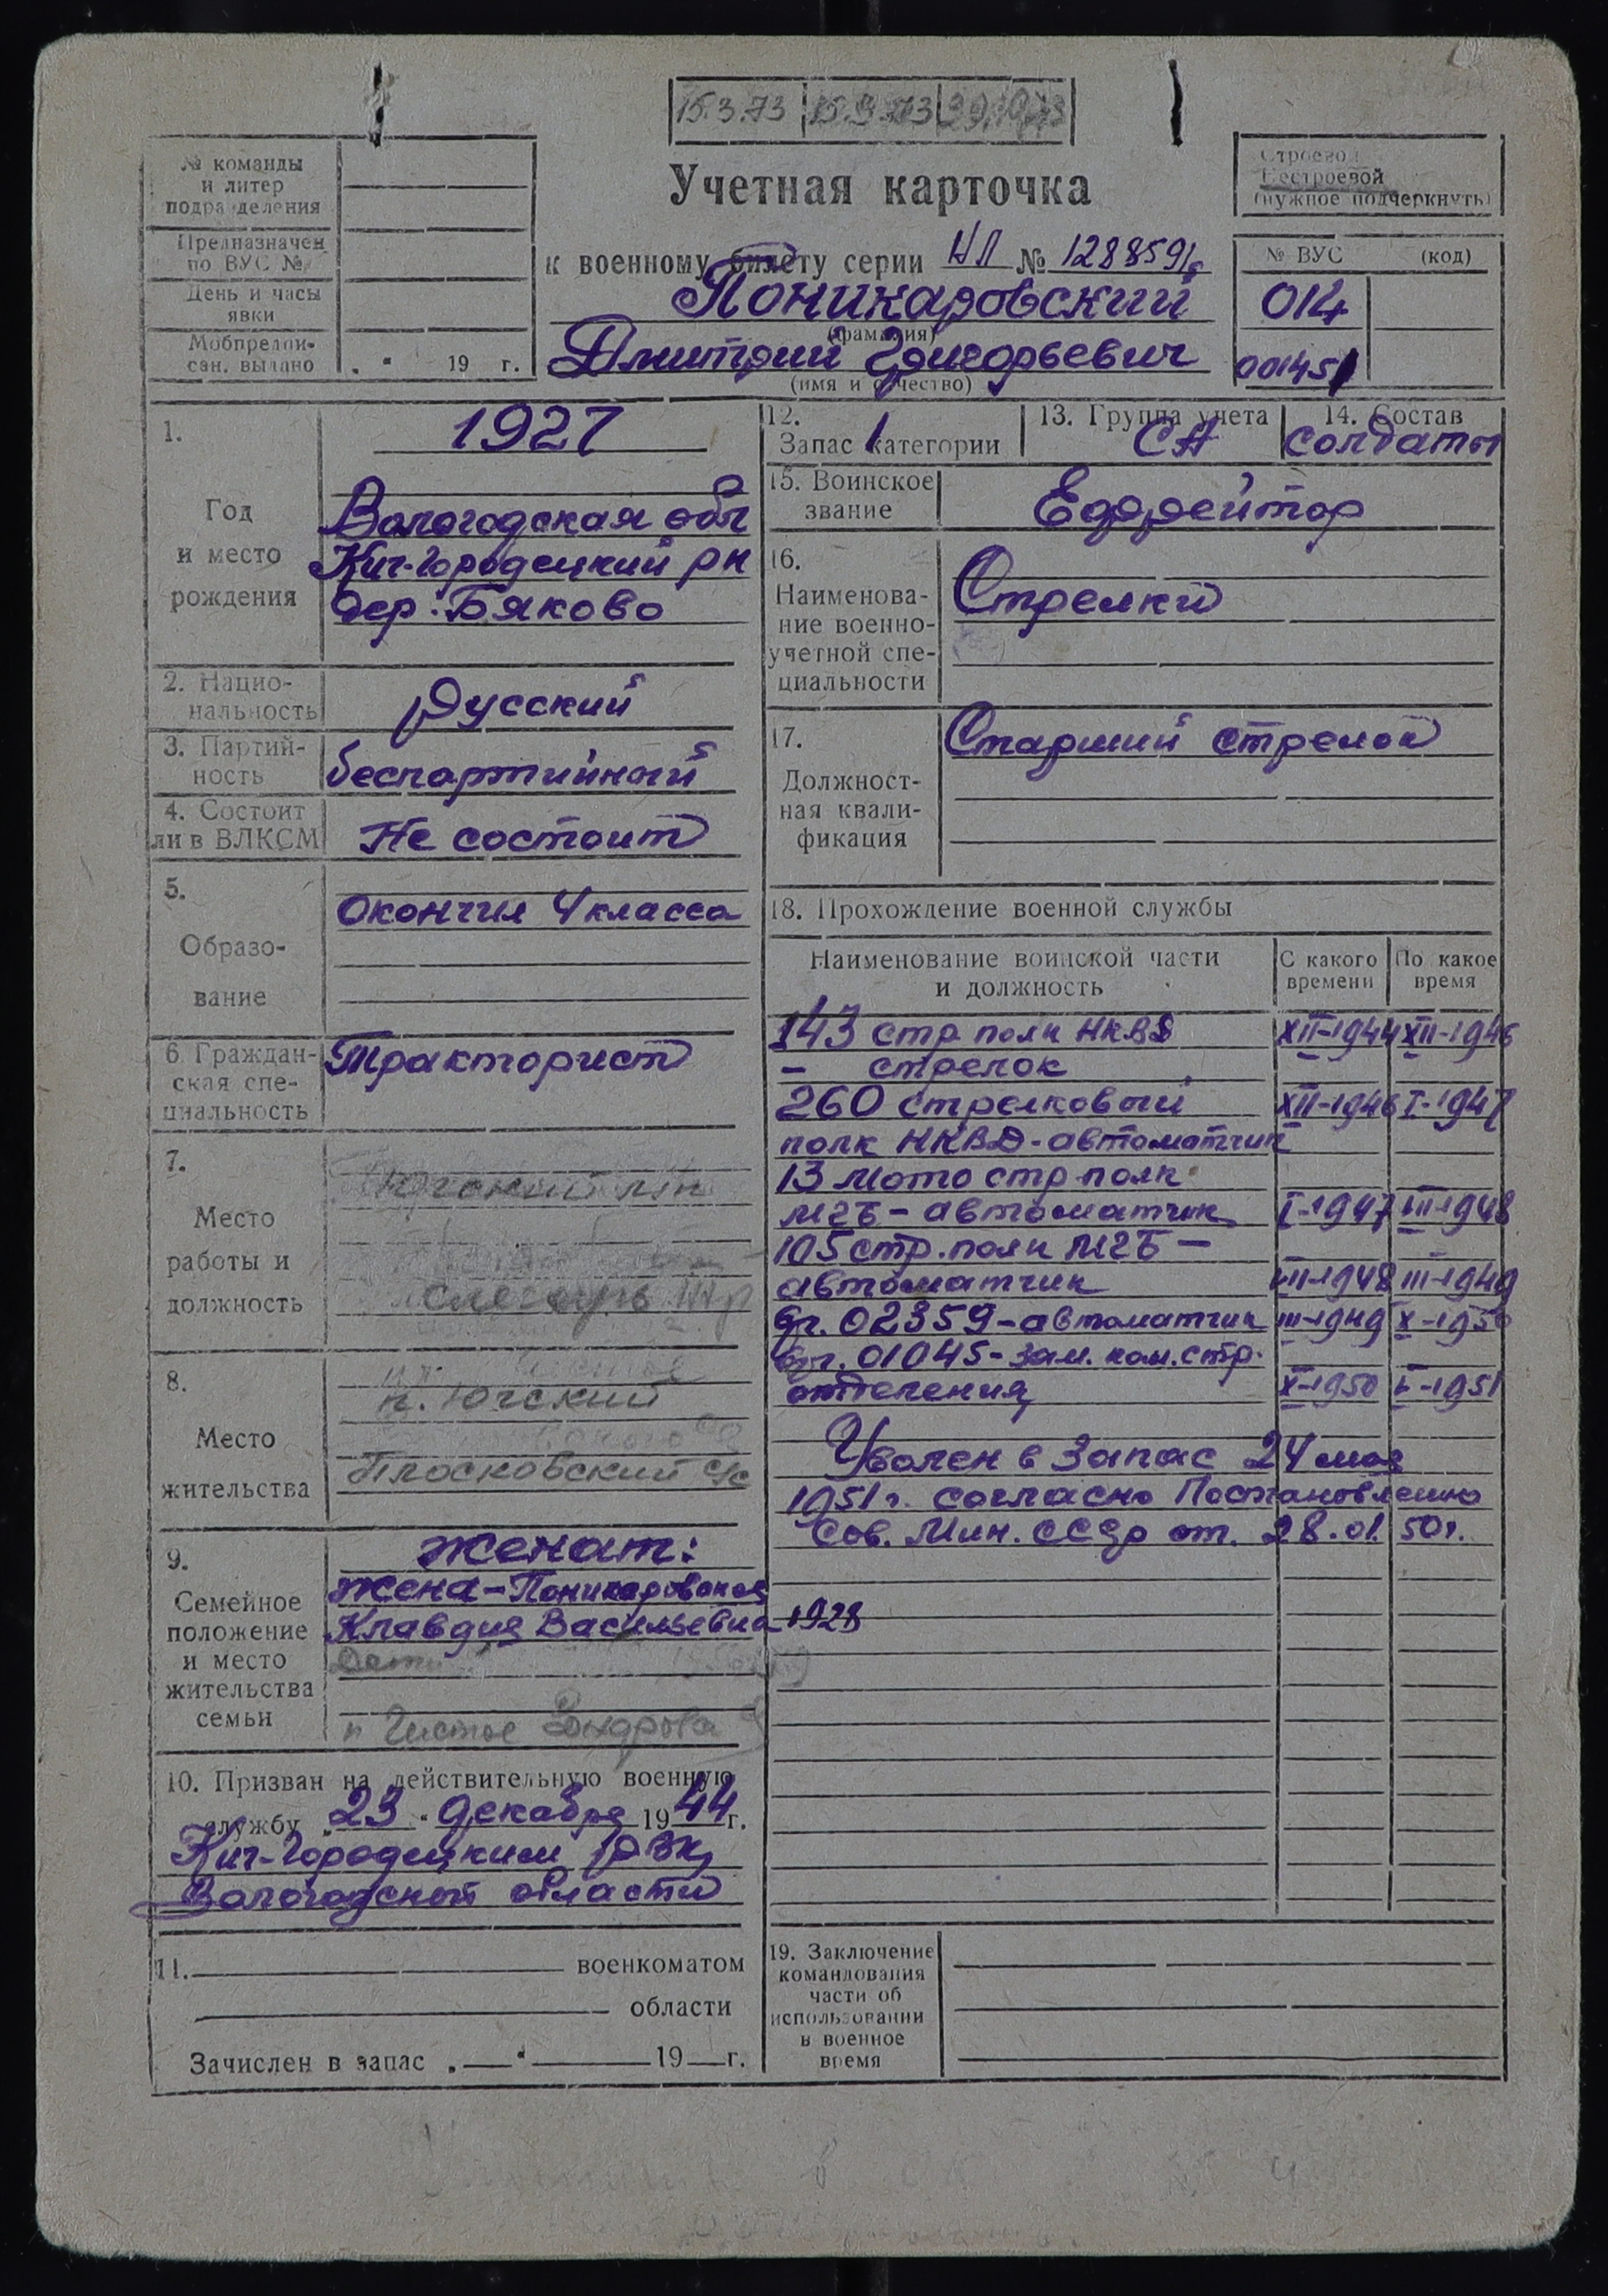 15.3.73
№ команды
и литер
подразделения
Предназначен
по ВУС №
День и часы
явки
Мобпредпи-
сан. выдано
„ “ 19 г.
Учетная карточка
к военному билету серии НЛ № 1288591
Поникаровский
(фамилия)
Дмитрий Григорьевич
(имя и отчество)
Строевой
Нестроевой
(нужное подчеркнуть)
№ ВУС (код)
014
001451
1.
Год
и место
рождения
1927
Вологодская обл
Кич-Городецкий рн
дер. Бяково
2. Нацио-
нальность
Русский
3. Партий-
ность
беспартийный
4. Состоит
ли в ВЛКСМ
Не состоит
5.
Образо-
вание
Окончил 4 класса
6. Граждан-
ская спе-
циальность
Тракторист
7.
Место
работы и
должность
Югский
слесарь
8.
Место
жительства
п. Югский
Плосковский с/с
9.
Семейное
положение
и место
жительства
семьи
Женат:
Жена-Поникаровская
Клавдия Васильевна 1928
Дети
п Чистое
10. Призван на действительную военную
службу „23“ декабря 1944 г.
Кич-Городецким РВК
Вологодской области
11. военкоматом
области
Зачислен в запас „ “ 19 г.
12.
Запас 1 категории
13. Группа учета
СА
14. Состав
солдаты
15. Воинское
звание
Ефрейтор
16.
Наименова-
ние военно-
учетной спе-
циальности
Стрелки
17.
Должност-
ная квали-
фикация
Старший стрелок
18. Прохождение военной службы
Наименование воинской части
и должность
С какого
времени
По какое
время
143 стр полк НКВД XII-1944 XII-1946
- стрелок
260 стрелковый XII-1946 I-1947
полк НКВД-автоматчик
13 мото стр полк
МГБ - автоматчик I-1947 III-1948
105 стр. полк МГБ -
автоматчик III-1948 III-1949
в/ч. 02359-автоматчик III-1949 X-1950
в/ч. 01045-зам. ком. стр.
отделения X-1950 V-1951
Уволен в запас 24 мая
1951 г. согласно Постановлению
Сов. Мин. СССР от. 28.01.50г.
19. Заключение
командования
части об
использовании
в военное
время